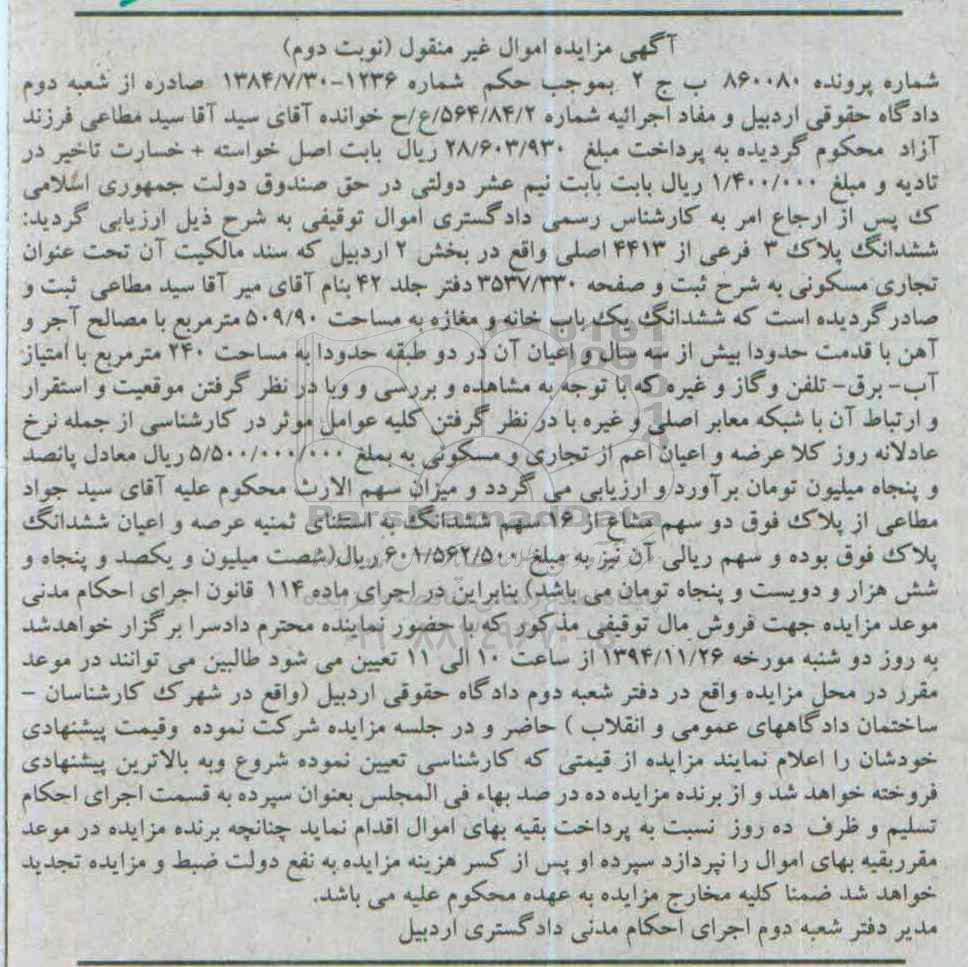 آگهی مزایده اموال غیر منقول (نوبت دوم)
شماره پرونده ۸۶۰۰۸۰ ب ج ۲ بموجب حکم شماره ۱۲۳۶-۱۳۸۴/۷/۳۰ صادره از شعبه دوم
دادگاه حقوقی اردبیل و مفاد اجرائیه شماره ۵۶۴/۸۴/۲/ع/ح خوانده آقای سید آقا سید مطاعی فرزند
آزاد محکوم گردیده به پرداخت مبلغ ۲۸/۶۰۳/۹۳۰ ریال بابت اصل خواسته + خسارت تاخیر در
تادیه و مبلغ ۱/۴۰۰/۰۰۰ ریال بابت بابت نیم عشر دولتی در حق صندوق دولت جمهوری اسلامی
ک پس از ارجاع امر به کارشناس رسمی دادگستری اموال توقیفی به شرح ذیل ارزیابی گردید:
ششدانگ پلاک ۳ فرعی از ۴۴۱۳ اصلی واقع در بخش ۲ اردبیل که سند مالکیت آن تحت عنوان
تجاری مسکونی به شرح ثبت و صفحه ۳۵۳۷/۳۳۰ دفتر جلد ۴۲ بنام آقای میر آقا سید مطاعی ثبت و
صادر گردیده است که ششدانگ یک باب خانه و مغازه به مساحت ۵۰۹/۹۰ مترمربع با مصالح آجر و
آهن با قدمت حدودا بیش از سه سال و اعیان آن در دو طبقه حدودا به مساحت ۲۴۰ مترمربع با امتیاز
آب- برق- تلفن و گاز و غیره که با توجه به مشاهده و بررسی و وبا در نظر گرفتن موقعیت و استقرار
و ارتباط آن با شبکه معابر اصلی و غیره با در نظر گرفتن کلیه عوامل موثر در کارشناسی از جمله نرخ
عادلانه روز کلا عرضه و اعیان اعم از تجاری و مسکونی به بملغ ۵/۵۰۰/۰۰۰/۰۰۰ ریال معادل پانصد
و پنجاه میلیون تومان برآورد و ارزیابی می گردد و میزان سهم الارث محکوم علیه آقای سید جواد
مطاعی از پلاک فوق دو سهم مشاع از ۱۶ سهم ششدانگ به استثنای ثمنیه عرصه و اعیان ششدانگ
پلاک فوق بوده و سهم ریالی آن نیز به مبلغ ۶۰۱/۵۶۲/۵۰۰ ریال(شصت میلیون و یکصد و پنجاه و
شش هزار و دویست و پنجاه تومان می باشد) بنابراین در اجرای ماده ۱۱۴ قانون اجرای احکام مدنی
موعد مزایده جهت فروش مال توقیفی مذکور که با حضور نماینده محترم دادسرا برگزار خواهدشد
به روز دو شنبه مورخه ۱۳۹۴/۱۱/۲۶ از ساعت ۱۰ الی ۱۱ تعیین می شود طالبین می توانند در موعد
مقرر در محل مزایده واقع در دفتر شعبه دوم دادگاه حقوقی اردبیل (واقع در شهرک کارشناسان -
ساختمان دادگاههای عمومی و انقلاب ) حاضر و در جلسه مزایده شرکت نموده وقیمت پیشنهادی
خودشان را اعلام نمایند مزایده از قیمتی که کارشناسی تعیین نموده شروع وبه بالاترین پیشنهادی
فروخته خواهد شد و از برنده مزایده ده در صد بهاء فی المجلس بعنوان سپرده به قسمت اجرای احکام
تسلیم و ظرف ده روز نسبت به پرداخت بقیه بهای اموال اقدام نماید چنانچه برنده مزایده در موعد
مقرربقیه بهای اموال را نپردازد سپرده او پس از کسر هزینه مزایده به نفع دولت ضبط و مزایده تجدید
خواهد شد ضمنا کلیه مخارج مزایده به عهده محکوم علیه می باشد.
مدیر دفتر شعبه دوم اجرای احکام مدنی دادگستری اردبیل
ParsNamadData